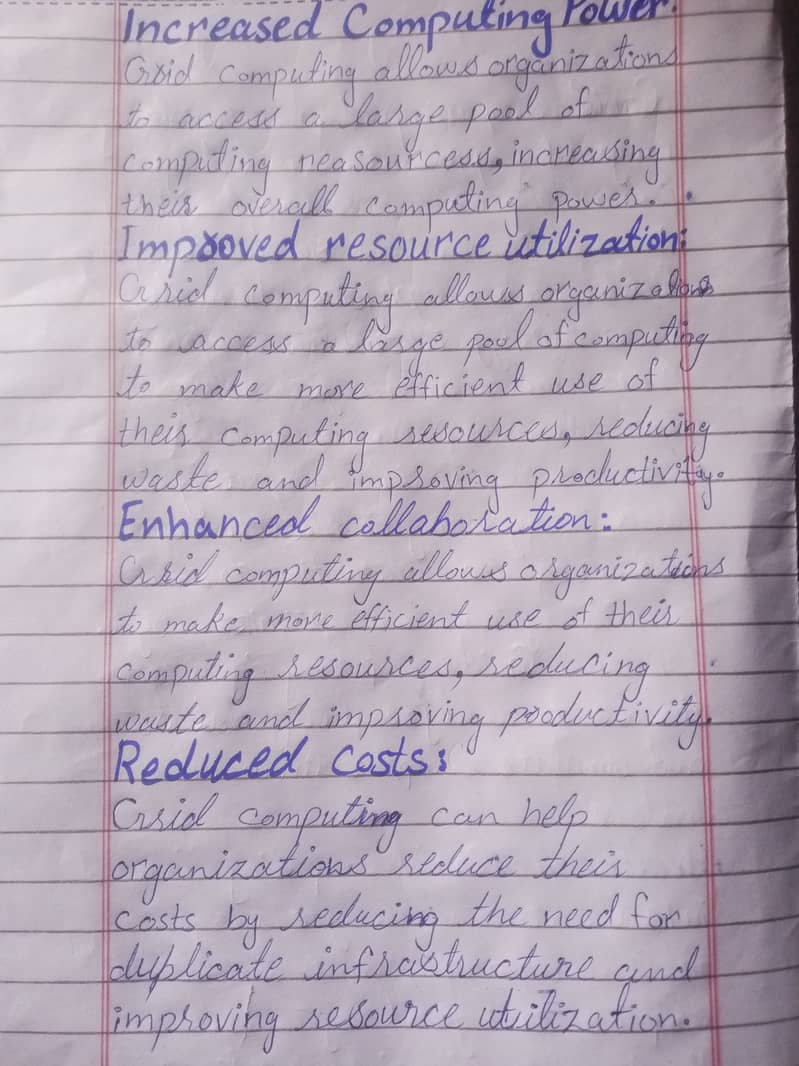 Increased Computing Power.
Grid computing allows organizations
to access a large pool of
computing reasourcess, increasing
their overall computing power.
Improved resource utilization:
Grid computing allows organizations
to access a large pool of computing
to make more efficient use of
their computing resources, reducing
waste and improving productivity.
Enhanced collaboration:
Grid computing allows organizations
to make more efficient use of their
computing resources, reducing
waste and improving productivity.
Reduced costs:
Grid computing can help
organizations reduce their
costs by reducing the need for
duplicate infrastructure and
improving resource utilization.